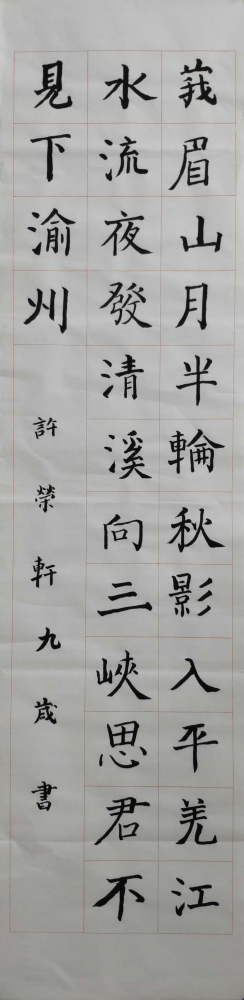 峩眉山月半輪秋影入平羌江
水流夜發清溪向三峽思君不
見下渝州
許榮軒九歲書